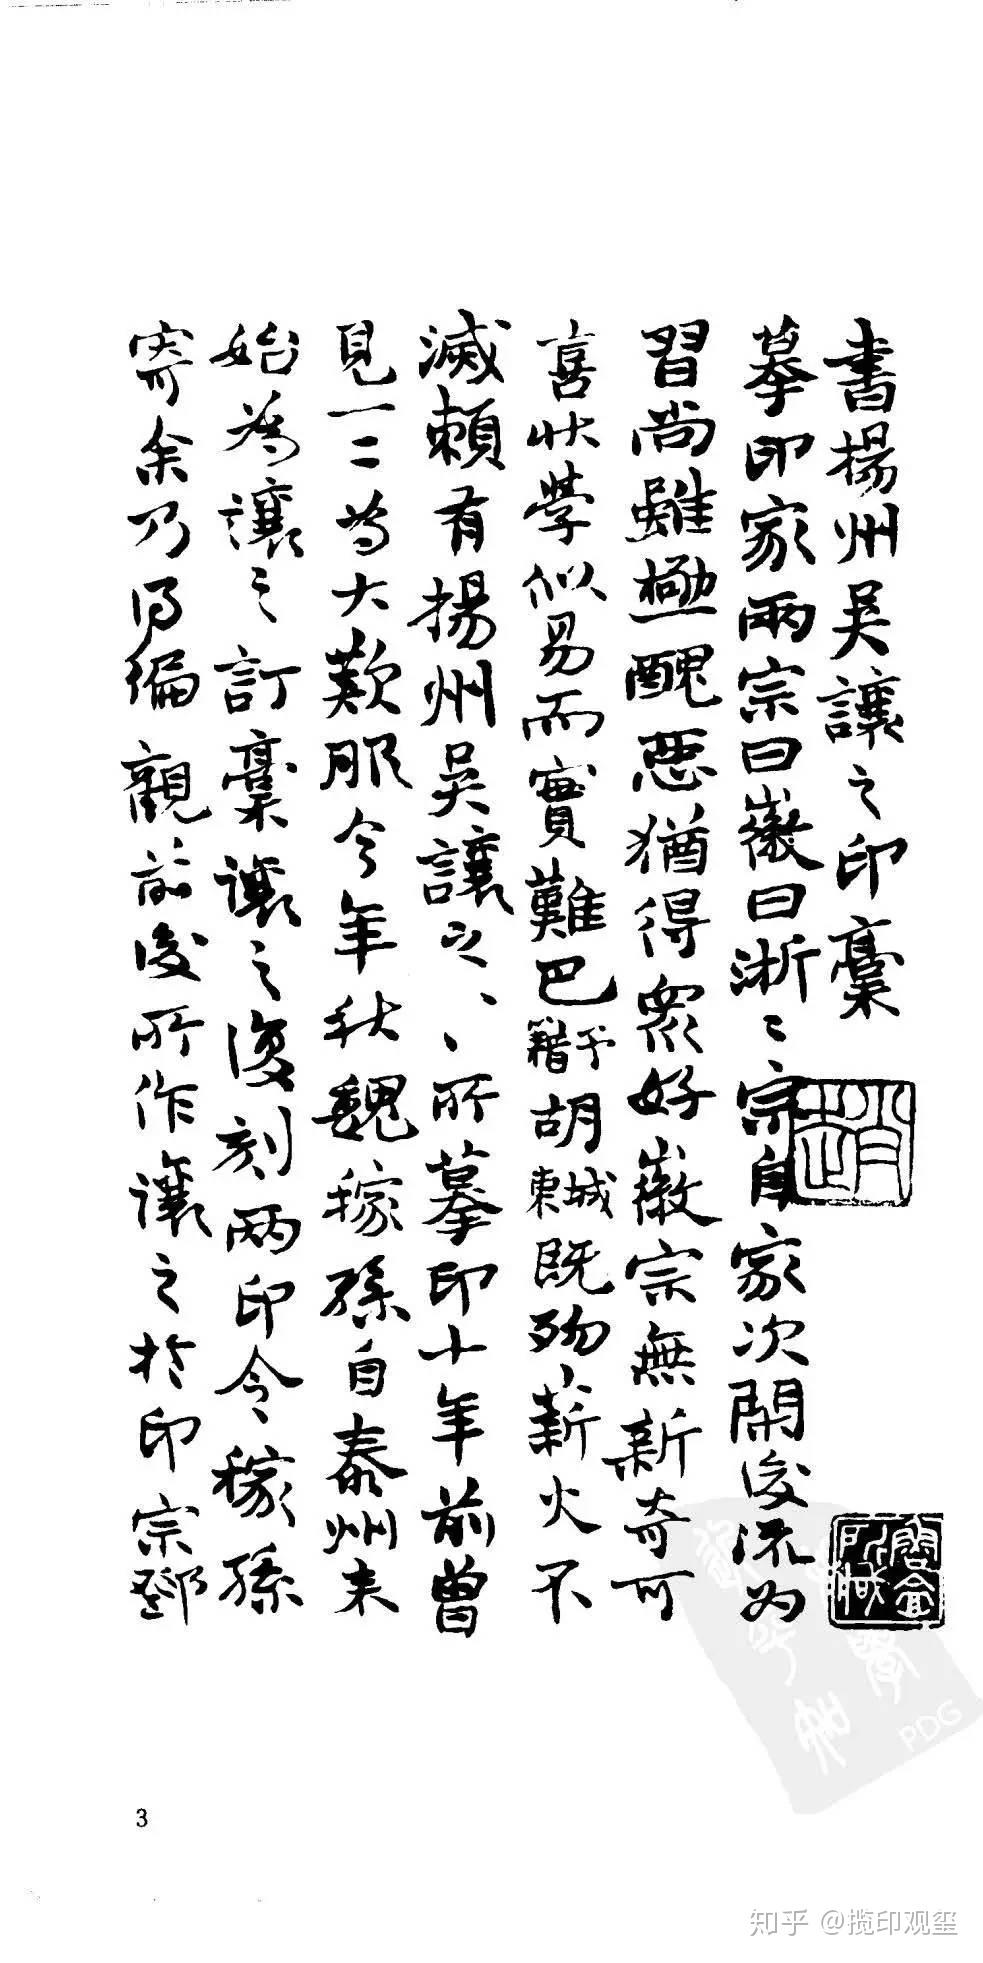 書揚州吳讓之印稾
摹印家兩宗曰徽曰浙〻宗自家次閑後流为
習尚雖極醜惡猶得眾好徽宗無新奇可
喜狀學似易而實難巴予籍胡城東既歿薪火不
滅賴有揚州吳讓之〻所摹印十年前曾
見一二為大歎服今年秋魏稼孫自泰州来
始為讓之訂稾讓之復刻兩印令〻稼孫
寄余乃得編觀前後所作讓之於印宗鄧
3
PDG
知乎 @揽印观玺